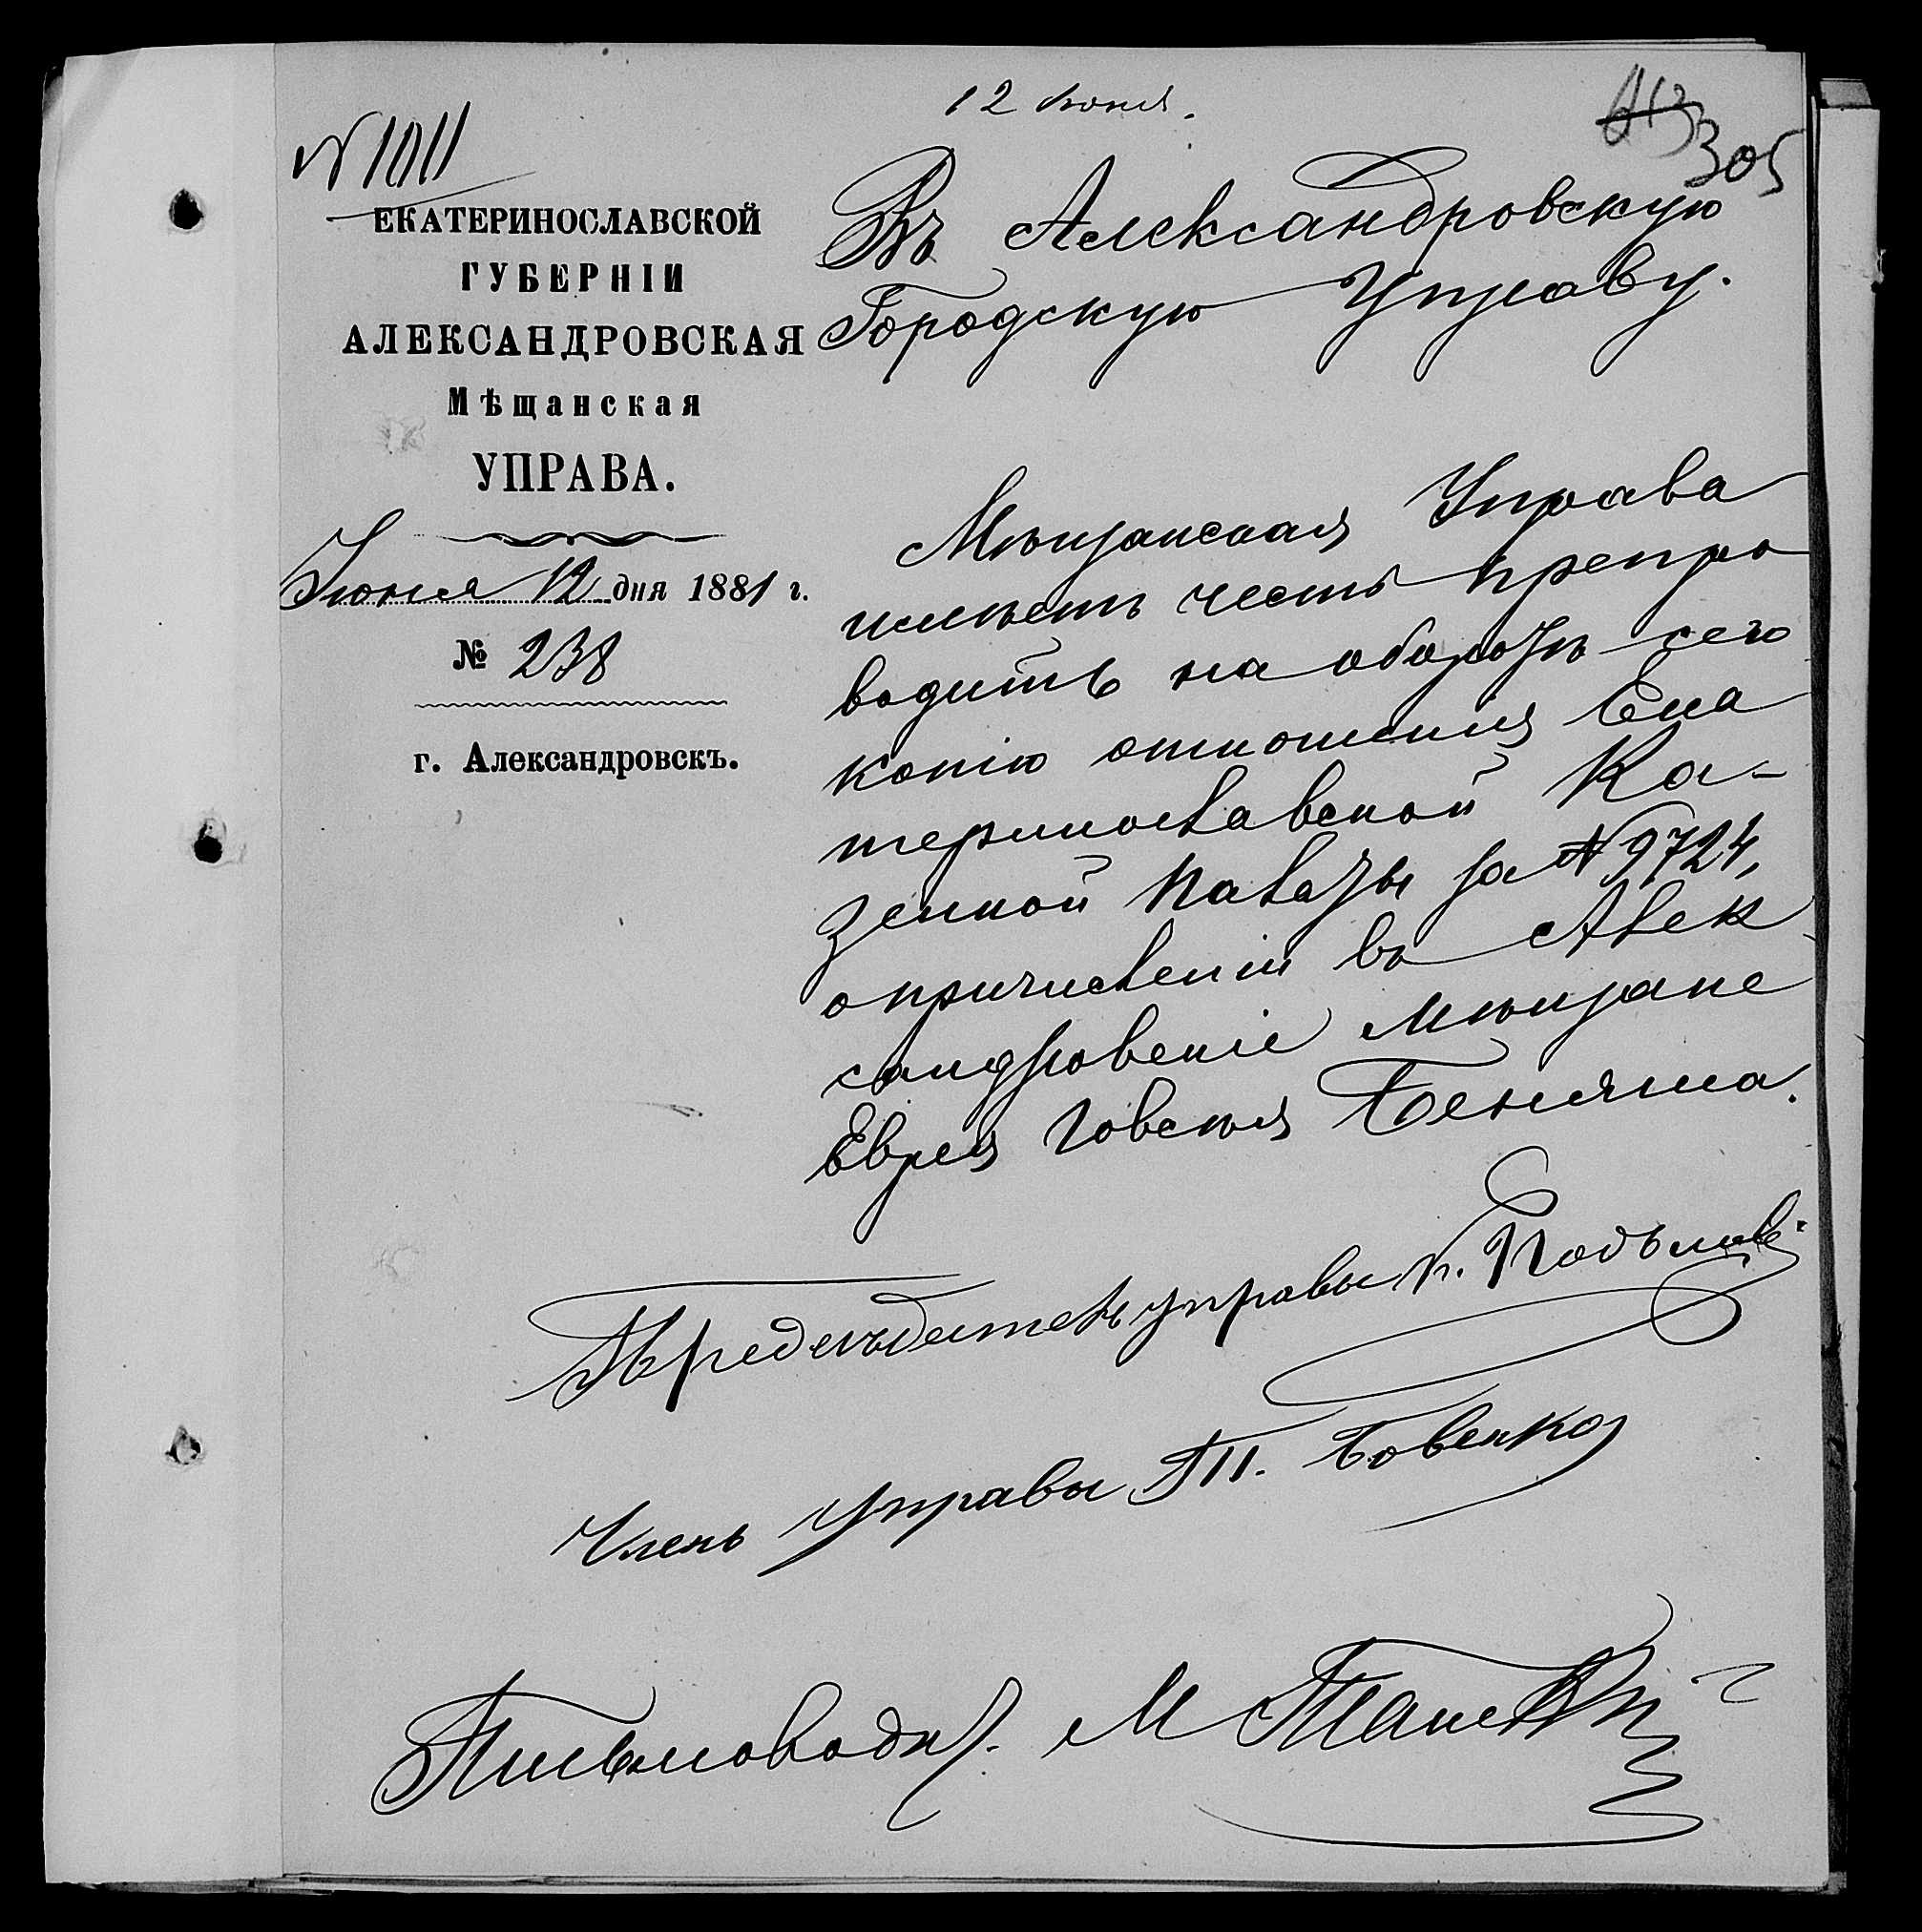 12 Июня.
305
№ 1011
ЕКАТЕРИНОСЛАВСКОЙ
ГУБЕРНІИ
АЛЕКСАНДРОВСКАЯ
Мѣщанская
УПРАВА.
Іюня 12 дня 1881 г.
№ 238
г. Александровскъ.
Въ Александровскую
Городскую Управу.
Мѣщанская Управа
имѣетъ честь препро
водить на оборотѣ сего
копію отношенія Ека
теринославской Ка-
зенной Палаты за № 9724,
о причисленіи въ Алек
сандровскіе мѣщане
Еврея Говскія Беняша.
Предсѣдатель управы П.
Членъ Управы П. Бовенко
Письмоводит. М